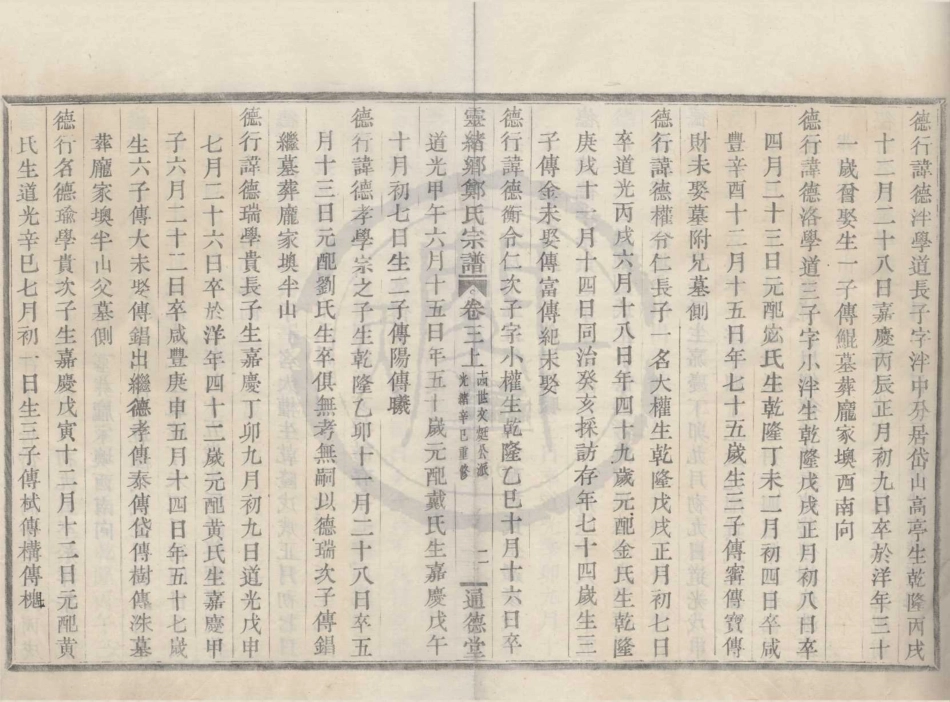 德行諱德泮學道長子字泮中分居岱山高亭生乾隆丙戌
十二月二十八日嘉慶丙辰正月初九日卒於洋年三十
一歲晉娶生一子傳鯤墓葬龐家墺西南向
德行諱德洛學道三子字小泮生乾隆戊戌正月初八日卒
四月二十三日元配宓氏生乾隆丁未二月初四日卒咸
豐辛酉十二月十五日年七十五歲生三子傳寗傳寶傳
財未娶墓附兄墓側
德行諱德權令仁長子一名大權生乾隆戊戌正月初七日
卒道光丙戌六月十八日年四十九歲元配金氏生乾隆
庚戌十一月十四日同治癸亥採訪存年七十四歲生三
子傳金未娶傳富傳紀未娶
德行諱德衡令仁次子字小權生乾隆乙巳十月十六日卒
靈緒鄉鄭氏宗譜 卷三上 二 通德堂
道光甲午六月十五日年五十歲元配戴氏生嘉慶戊午
十月初七日生二子傳陽傳曦
德行諱德孝學宗之子生乾隆乙卯十一月二十八日卒五
月十三日元配劉氏生卒俱無考無嗣以德瑞次子傳錩
繼墓葬龐家墺半山
德行諱德瑞學貴長子生嘉慶丁卯九月初九日道光戊申
七月二十六日卒於洋年四十二歲元配黃氏生嘉慶甲
子六月二十二日卒咸豐庚申五月十四日年五十七歲
生六子傳大未娶傳錩出繼德孝傳泰傳岱傳樹傳洙墓
葬龐家墺半山父墓側
德行名德瑜學貴次子生嘉慶戊寅十二月十三日元配黃
氏生道光辛巳七月初一日生三子傳栻傳構傳槐